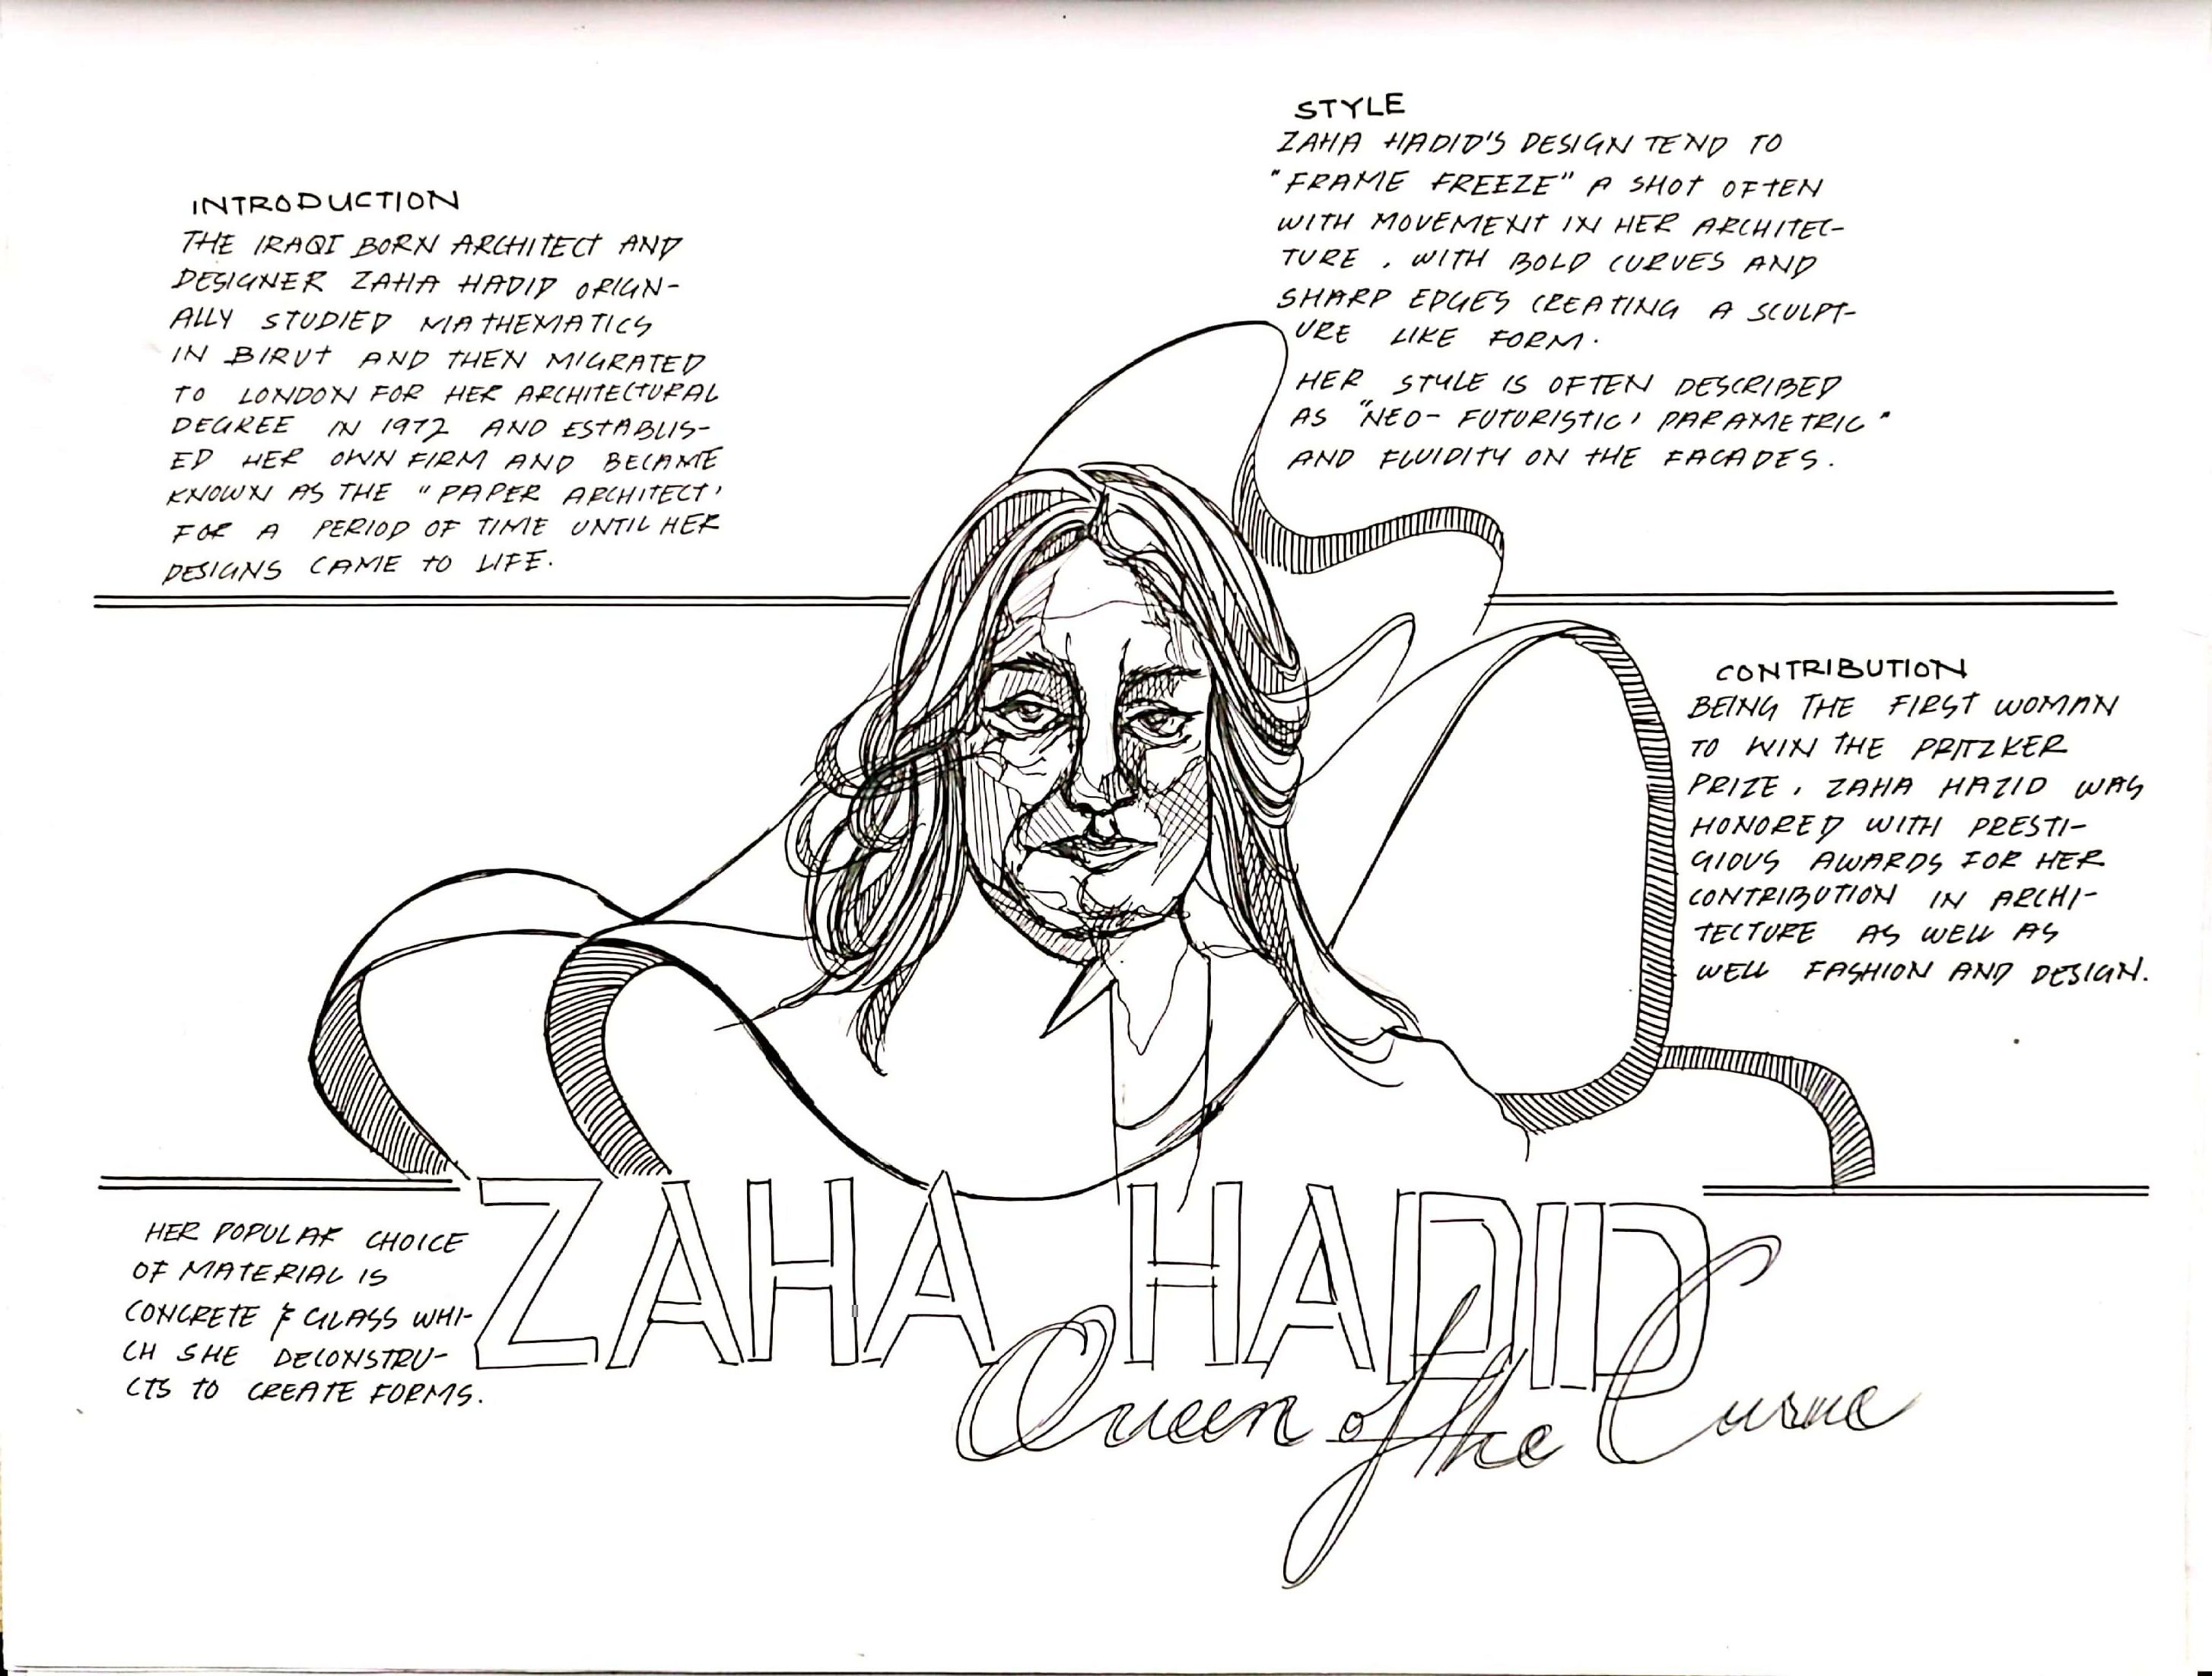 INTRODUCTION
THE IRAQI BORN ARCHITECT AND
DESIGNER ZAHA HADID ORIGN-
ALLY STUDIED MATHEMATICS
IN BIRUT AND THEN MIGRATED
TO LONDON FOR HER ARCHITECTURAL
DEGREE IN 1972 AND ESTABLIS-
ED HER OWN FIRM AND BECAME
KNOWN AS THE "PAPER ARCHITECT'
FOR A PERIOD OF TIME UNTIL HER
DESIGNS CAME TO LIFE.
STYLE
ZAHA HADID'S DESIGN TEND TO
"FRAME FREEZE" A SHOT OFTEN
WITH MOVEMENT IN HER ARCHITEC-
TURE, WITH BOLD CURVES AND
SHARP EDGES CREATING A SCULPT-
URE LIKE FORM.
HER STYLE IS OFTEN DESCRIBED
AS "NEO-FUTURISTIC, PARAMETRIC"
AND FLUIDITY ON THE FACADES.
CONTRIBUTION
BEING THE FIRST WOMAN
TO WIN THE PRITZKER
PRIZE, ZAHA HAZID WAS
HONORED WITH PRESTI-
GIOUS AWARDS FOR HER
CONTRIBUTION IN ARCHI-
TECTURE AS WELL AS
WELL FASHION AND DESIGN.
HER POPULAR CHOICE
OF MATERIAL IS
CONCRETE & GLASS WHI-
CH SHE DECONSTRU-
CTS TO CREATE FORMS.
ZAHA HADID
Queen of the Curve